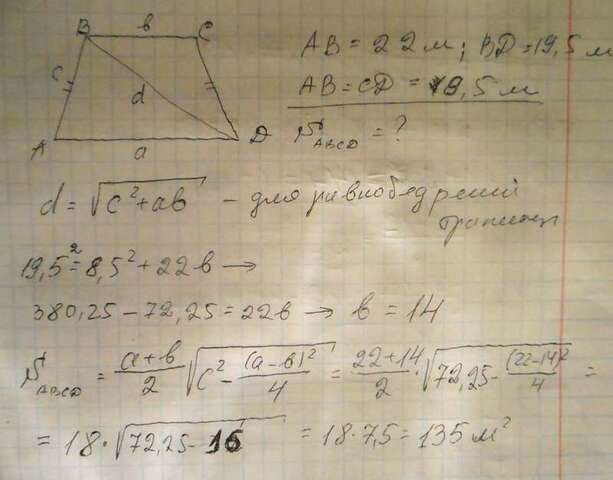 B в C
c
d
A a D
AB = 22 м; BD = 19,5 м
AB = CD = 19,5 м
S ABCD = ?
d = √(c² + ав) – для равнобедренной
трапеции
19,5² = 8,5² + 22в →
380,25 – 72,25 = 22в → в = 14
S ABCD = (а+в)/2 √(c² – (а–в)²/4) = (22+14)/2 · √(72,25 – (22–14)²/4) =
= 18 · √(72,25 – 16) = 18 · 7,5 = 135 м²